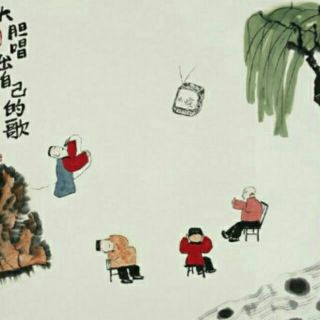 大胆唱出自己的歌